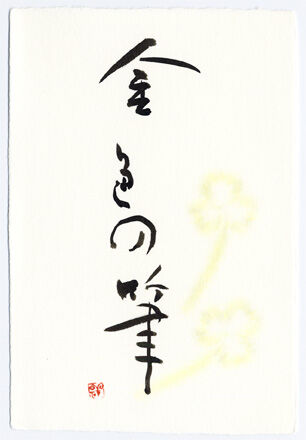 金色の筆